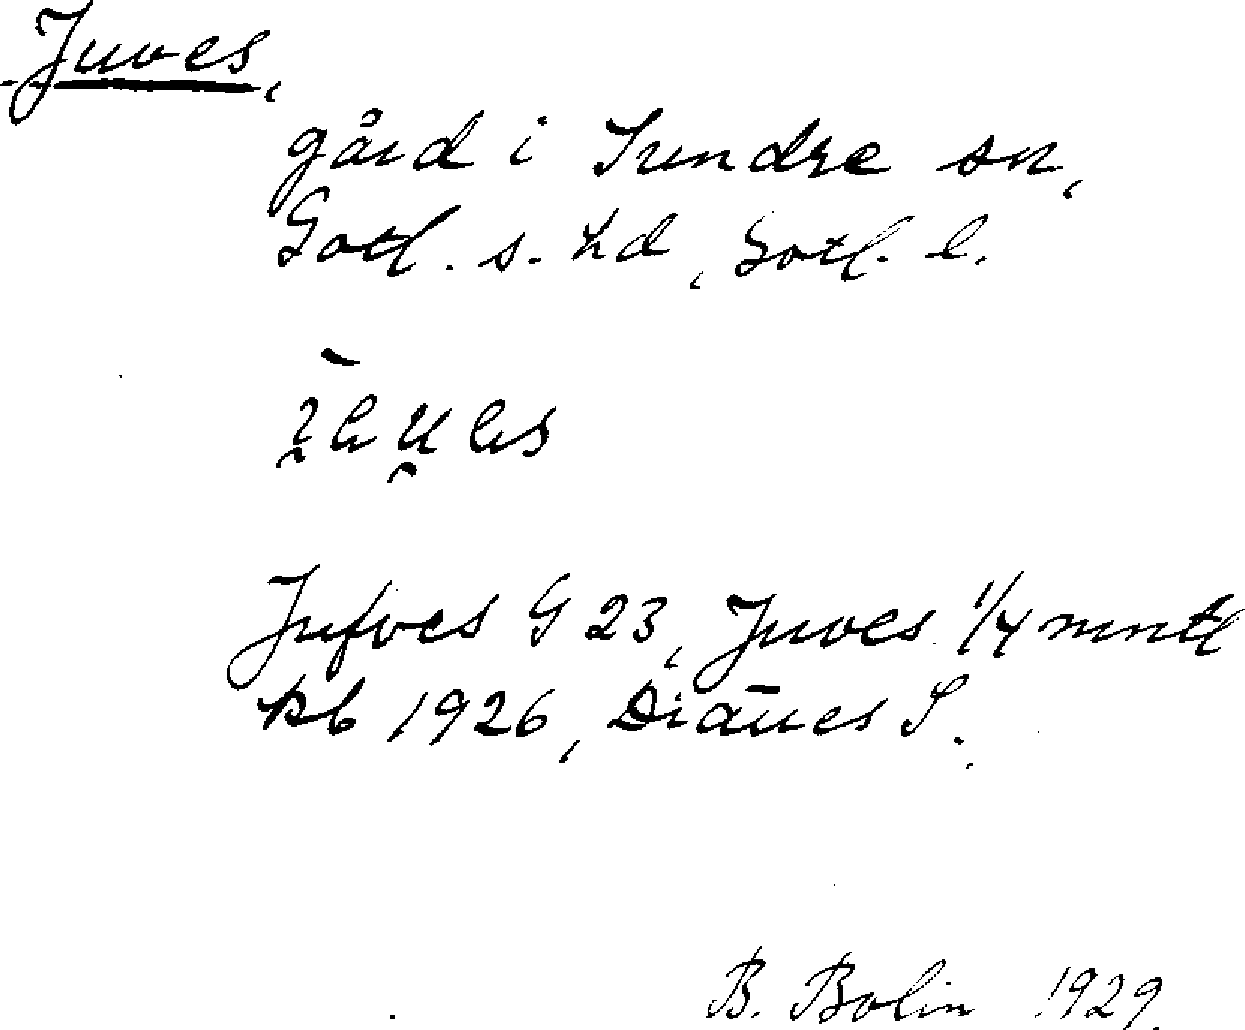 Juves,
gård i Sundre sn,
Gotl. s. hd, Gotl. l.
Jufves G 23, Juves 1/4 mntl
kb 1926, Diaues S.
B. Bolin 1929.